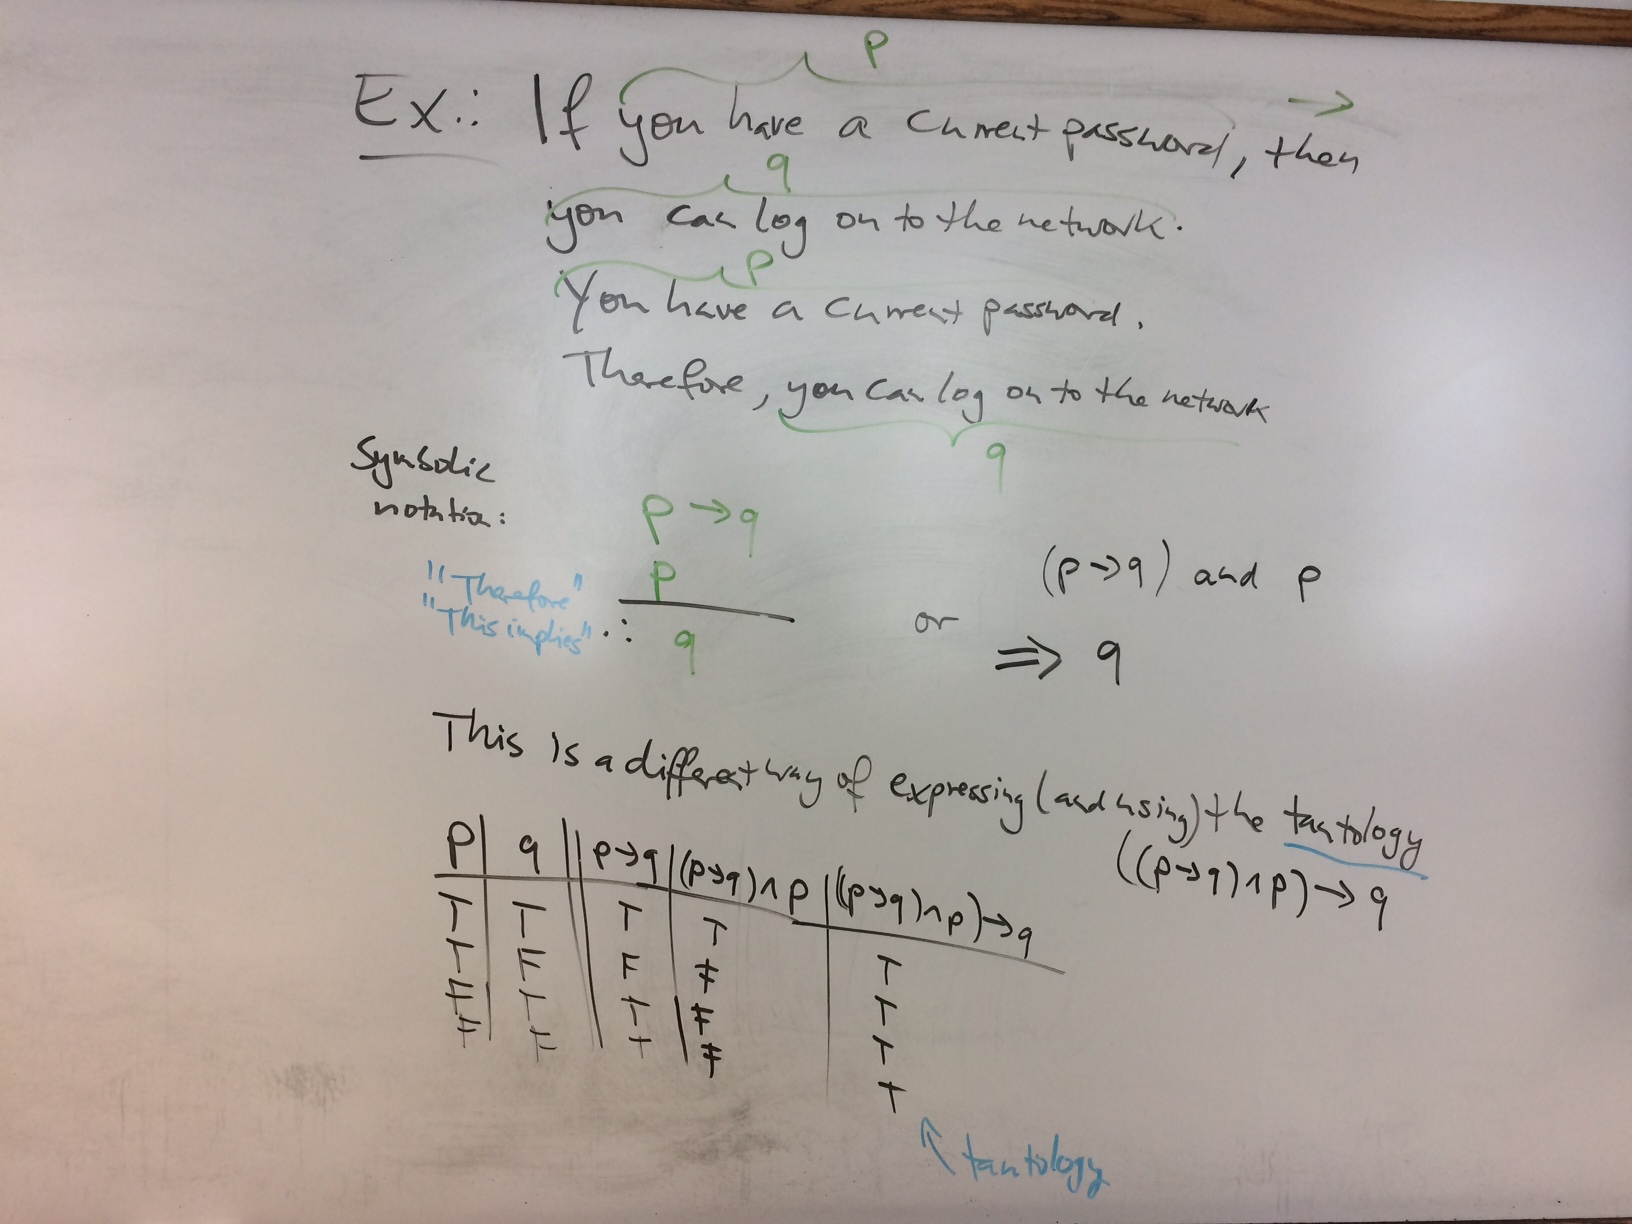 p
Ex.: If you have a current password, then →
q
you can log on to the network.
p
You have a current password.
Therefore, you can log on to the network
q
Symbolic
notation:
p → q
p
"Therefore"
"This implies" ∴ q
or
(p → q) and p
⇒ q
This is a different way of expressing (and using) the tautology
((p → q) ∧ p) → q
p | q || p → q | (p → q) ∧ p | ((p → q) ∧ p) → q
T T T T T
T F F F T
F T T F T
F F T F T
tautology